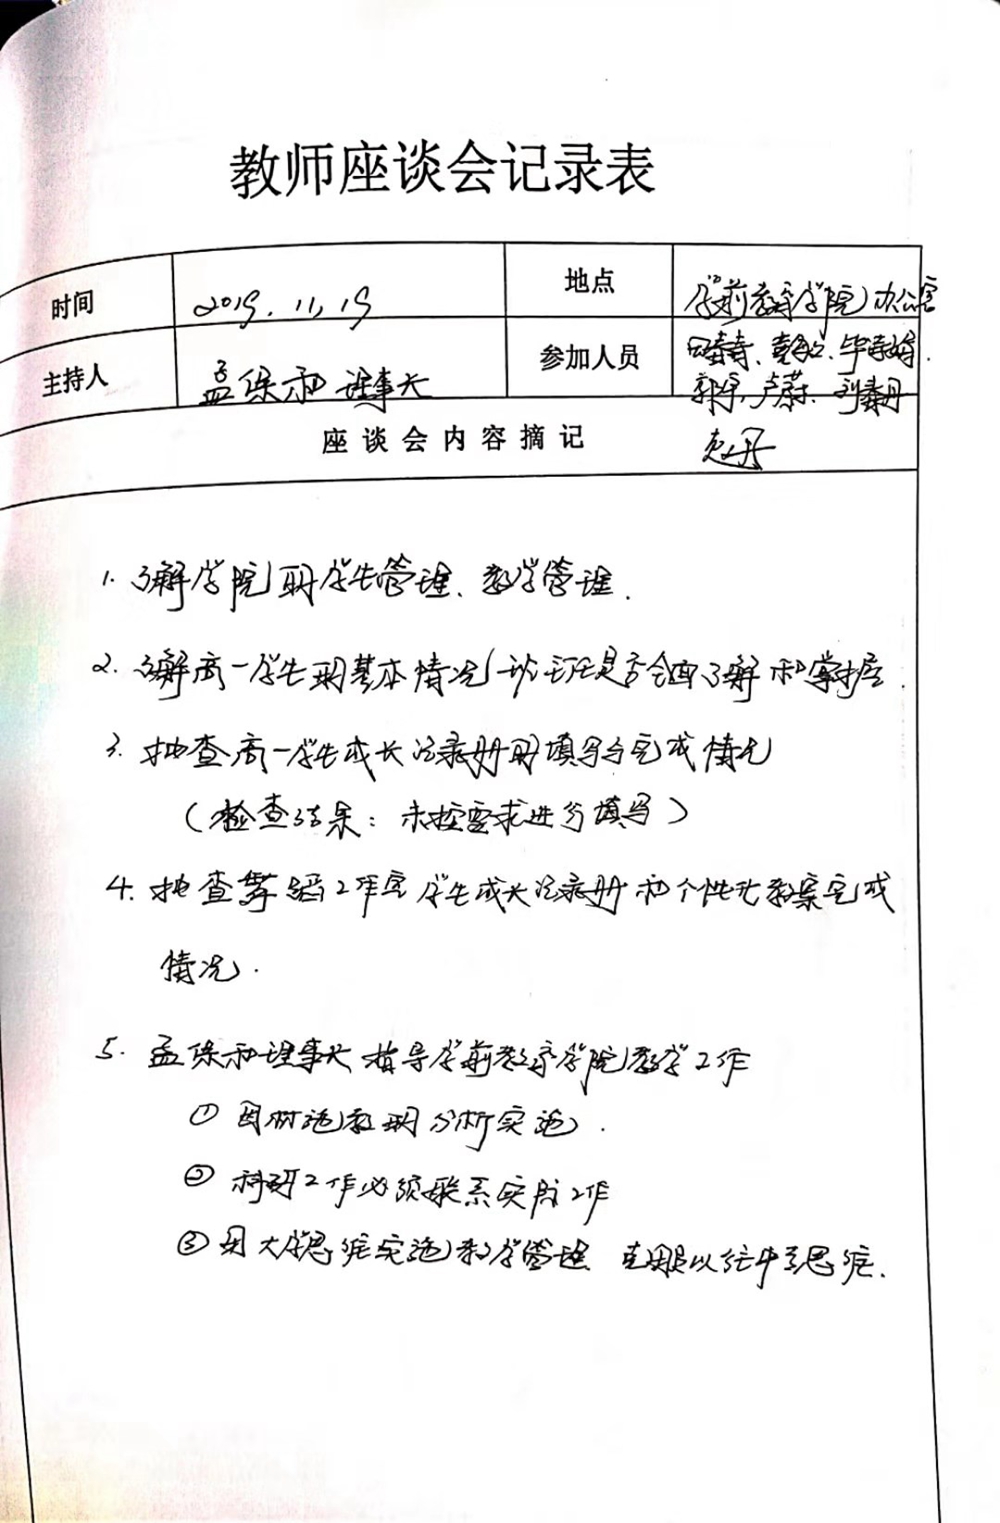 教师座谈会记录表
时间 2019.11.19 地点 学前教育学院办公室
主持人 孟保和理事长 参加人员
郭军、卢蔚、刘春丹
座谈会内容摘记
1. 了解学院的学生管理、教学管理.
2. 了解高一学生的基本情况(班主任是否全面了解和掌握
3. 抽查高一学生成长记录册的填写与完成情况
(检查结果：未按要求进行填写)
4. 抽查舞蹈工作室学生成长记录册和个性化教案完成
情况.
5. 孟保和理事长指导学前教育学院教学工作
① 因材施教的分析实施.
② 科研工作必须联系实际工作
③ 用大学思维实施教学管理 克服以往中专思维.